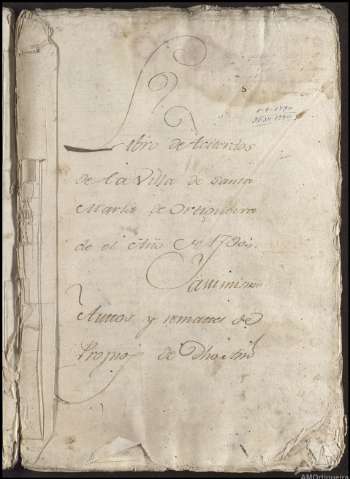 Libro de Acuerdos
de la Villa de Santa
Marta de Ortigueira
de el Año de 1790,
Y
Autos, y remates de
Propios de Dho Año
AMOrtigueira